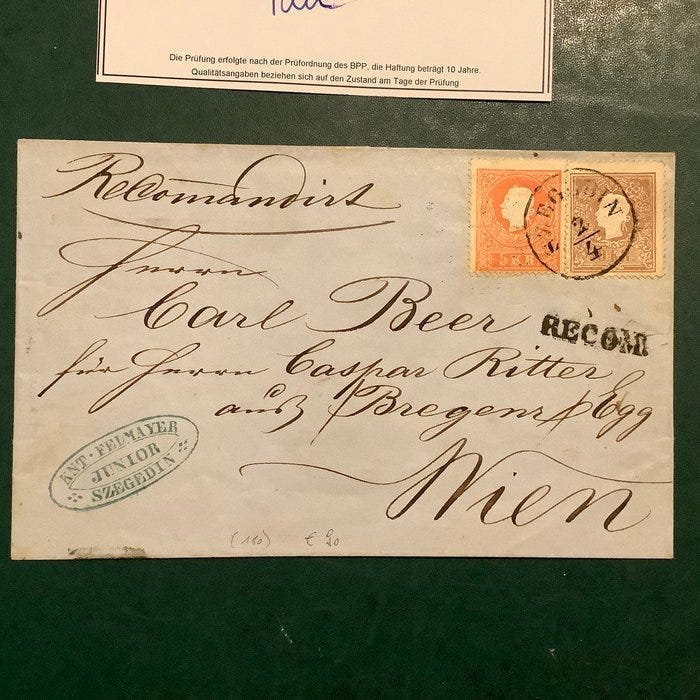 Die Prüfung erfolgte nach der Prüfordnung des BPP, die Haftung beträgt 10 Jahre.
Qualitätsangaben beziehen sich auf den Zustand am Tage der Prüfung
Recom̄andirt
SZEGEDIN
2/4
5 KR
Herrn
Carl Beer
RECOM.
für Herrn Caspar Ritter
aus Bregenz Egg
Wien
ANT. FELMAYER
JUNIOR
SZEGEDIN
(180) € 90